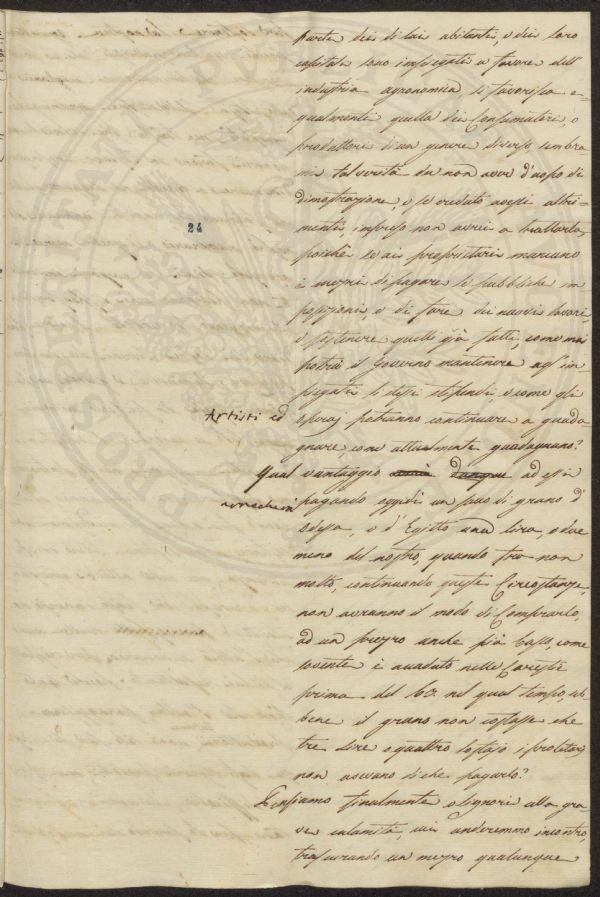 parte dei di lei abitanti, e dei loro
capitali sono impiegati a favore dell'
industria agronomica si favorisca e-
qualmente quella dei Consumatori, o
produttori di un genere diverso sembra-
mi tal verità da non aver d'uopo di
dimostrazione, e se creduto avessi altri-
menti, impreso non avrei a trattarla,
poichè se ai proprietari mancano
i mezzi di pagare le pubbliche im-
posizioni e di fare dei nuovi lavori,
e sostenere quelli già fatti, come mai
potrà il Governo mantenere agl'im-
piegati li stessi stipendi, e come gli
Artisti ed
operaj potranno continuare a guada-
gnare, come attualmente guadagnano?
Qual vantaggio dunque ad essi
arrecherà
pagando oggidì un sacco di grano d'
Odessa, o d'Egitto una lira, o due
meno del nostro, quando fra non
molto, continuando queste Circostanze,
non avranno il modo di Comprarlo,
ad un prezzo anche più basso, come
sovente è accaduto nelle Carestie
prima del nel qual tempo, seb-
bene il grano non costasse che
tre lire o quattro lo stajo i proletarj
non avevano di che pagarlo?
Pensiamo finalmente o Signori alla gra-
ve calamità, cui anderemmo incontro,
trascurando un mezzo qualunque
24